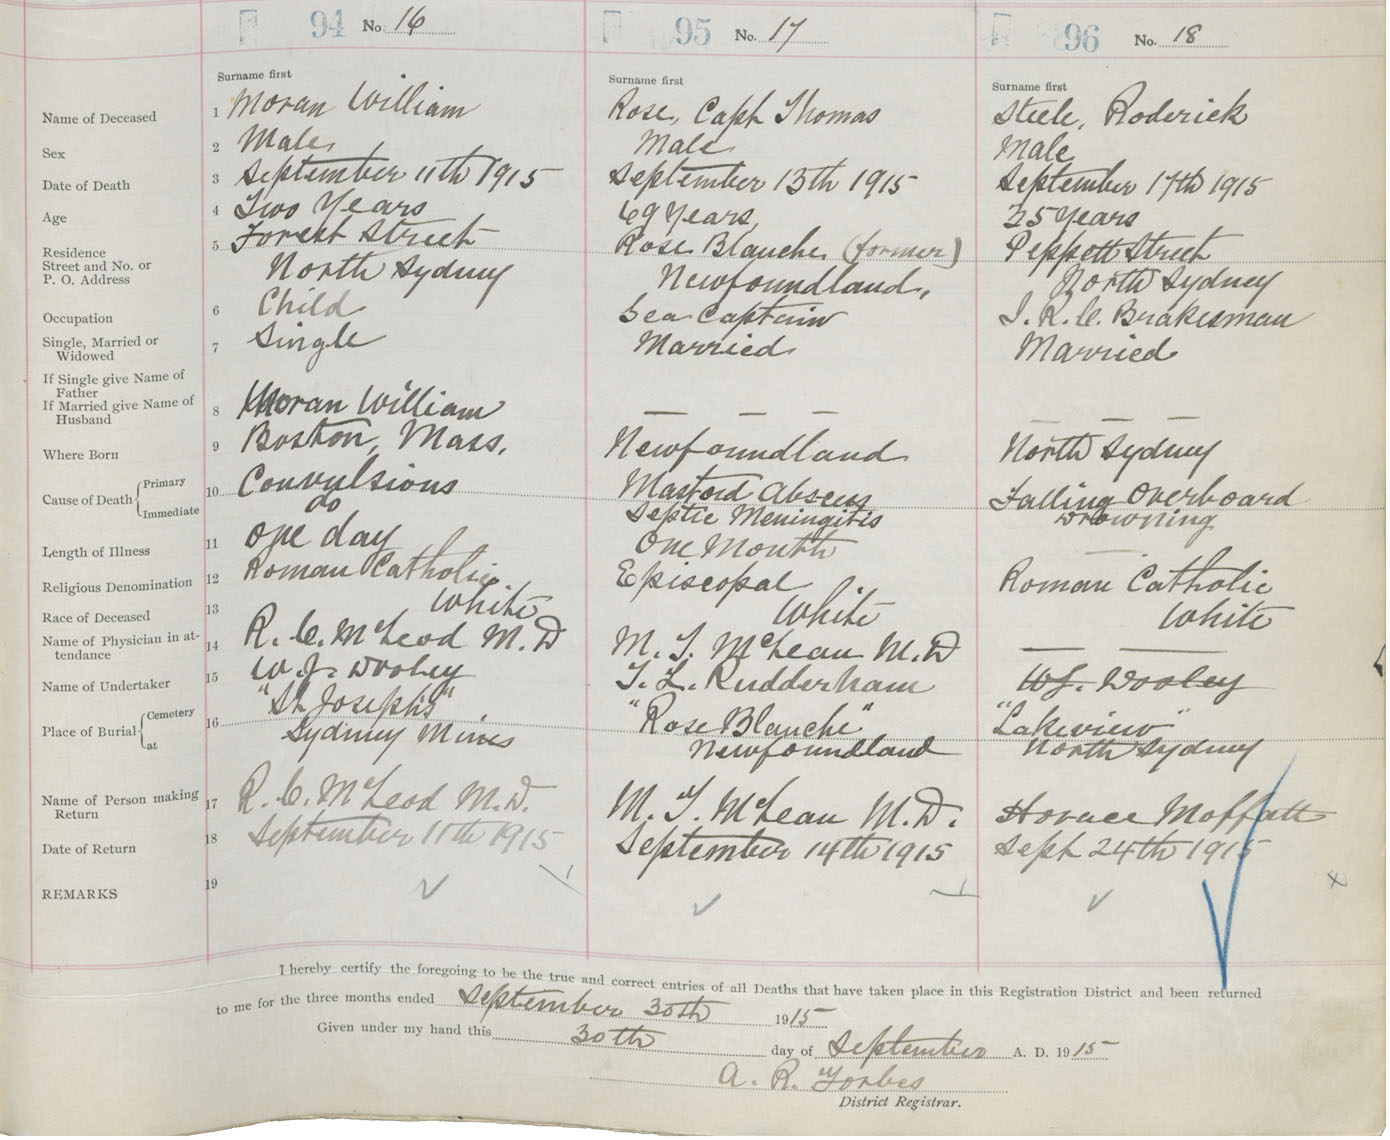 94 No. 16 95 No. 17 96 No. 18
Surname first Surname first Surname first
Name of Deceased 1 Moran William Rose, Capt Thomas Steele, Roderick
Sex 2 Male Male Male
Date of Death 3 September 11th 1915 September 13th 1915 September 17th 1915
Age 4 Two Years 69 Years 25 Years
Residence 5 Forest Street Rose Blanche (former) Peppett Street
Street and No. or
P. O. Address North Sydney Newfoundland, North Sydney
Occupation 6 Child Sea Captain I. R. C. Brakesman
Single, Married or
Widowed 7 Single Married Married
If Single give Name of
Father
If Married give Name of
Husband 8 Moran William — — — — — —
Where Born 9 Boston, Mass. Newfoundland North Sydney
Cause of Death { Primary 10 Convulsions Mastoid Abscess Falling Overboard
Immediate do Septic Meningitis Drowning
Length of Illness 11 One day One Month —
Religious Denomination 12 Roman Catholic. Episcopal Roman Catholic
Race of Deceased 13 White White White
Name of Physician in at-
tendance 14 R. C. McLeod M.D M. T. McLean M.D — —
Name of Undertaker 15 W. J. Dooley T. L. Rudderham W J. Dooley
Place of Burial { Cemetery 16 "St Joseph's" "Rose Blanche" "Lakeview"
at Sydney Mines Newfoundland North Sydney
Name of Person making
Return 17 R. C. McLeod M.D. M. T. McLean M.D. Horace Moffatt
Date of Return 18 September 11th 1915 September 14th 1915 Sept 24th 1915
REMARKS 19
I hereby certify the foregoing to be the true and correct entries of all Deaths that have taken place in this Registration District and been returned
to me for the three months ended September 30th 1915
Given under my hand this 30th day of September A. D. 1915
A. R. Forbes
District Registrar.